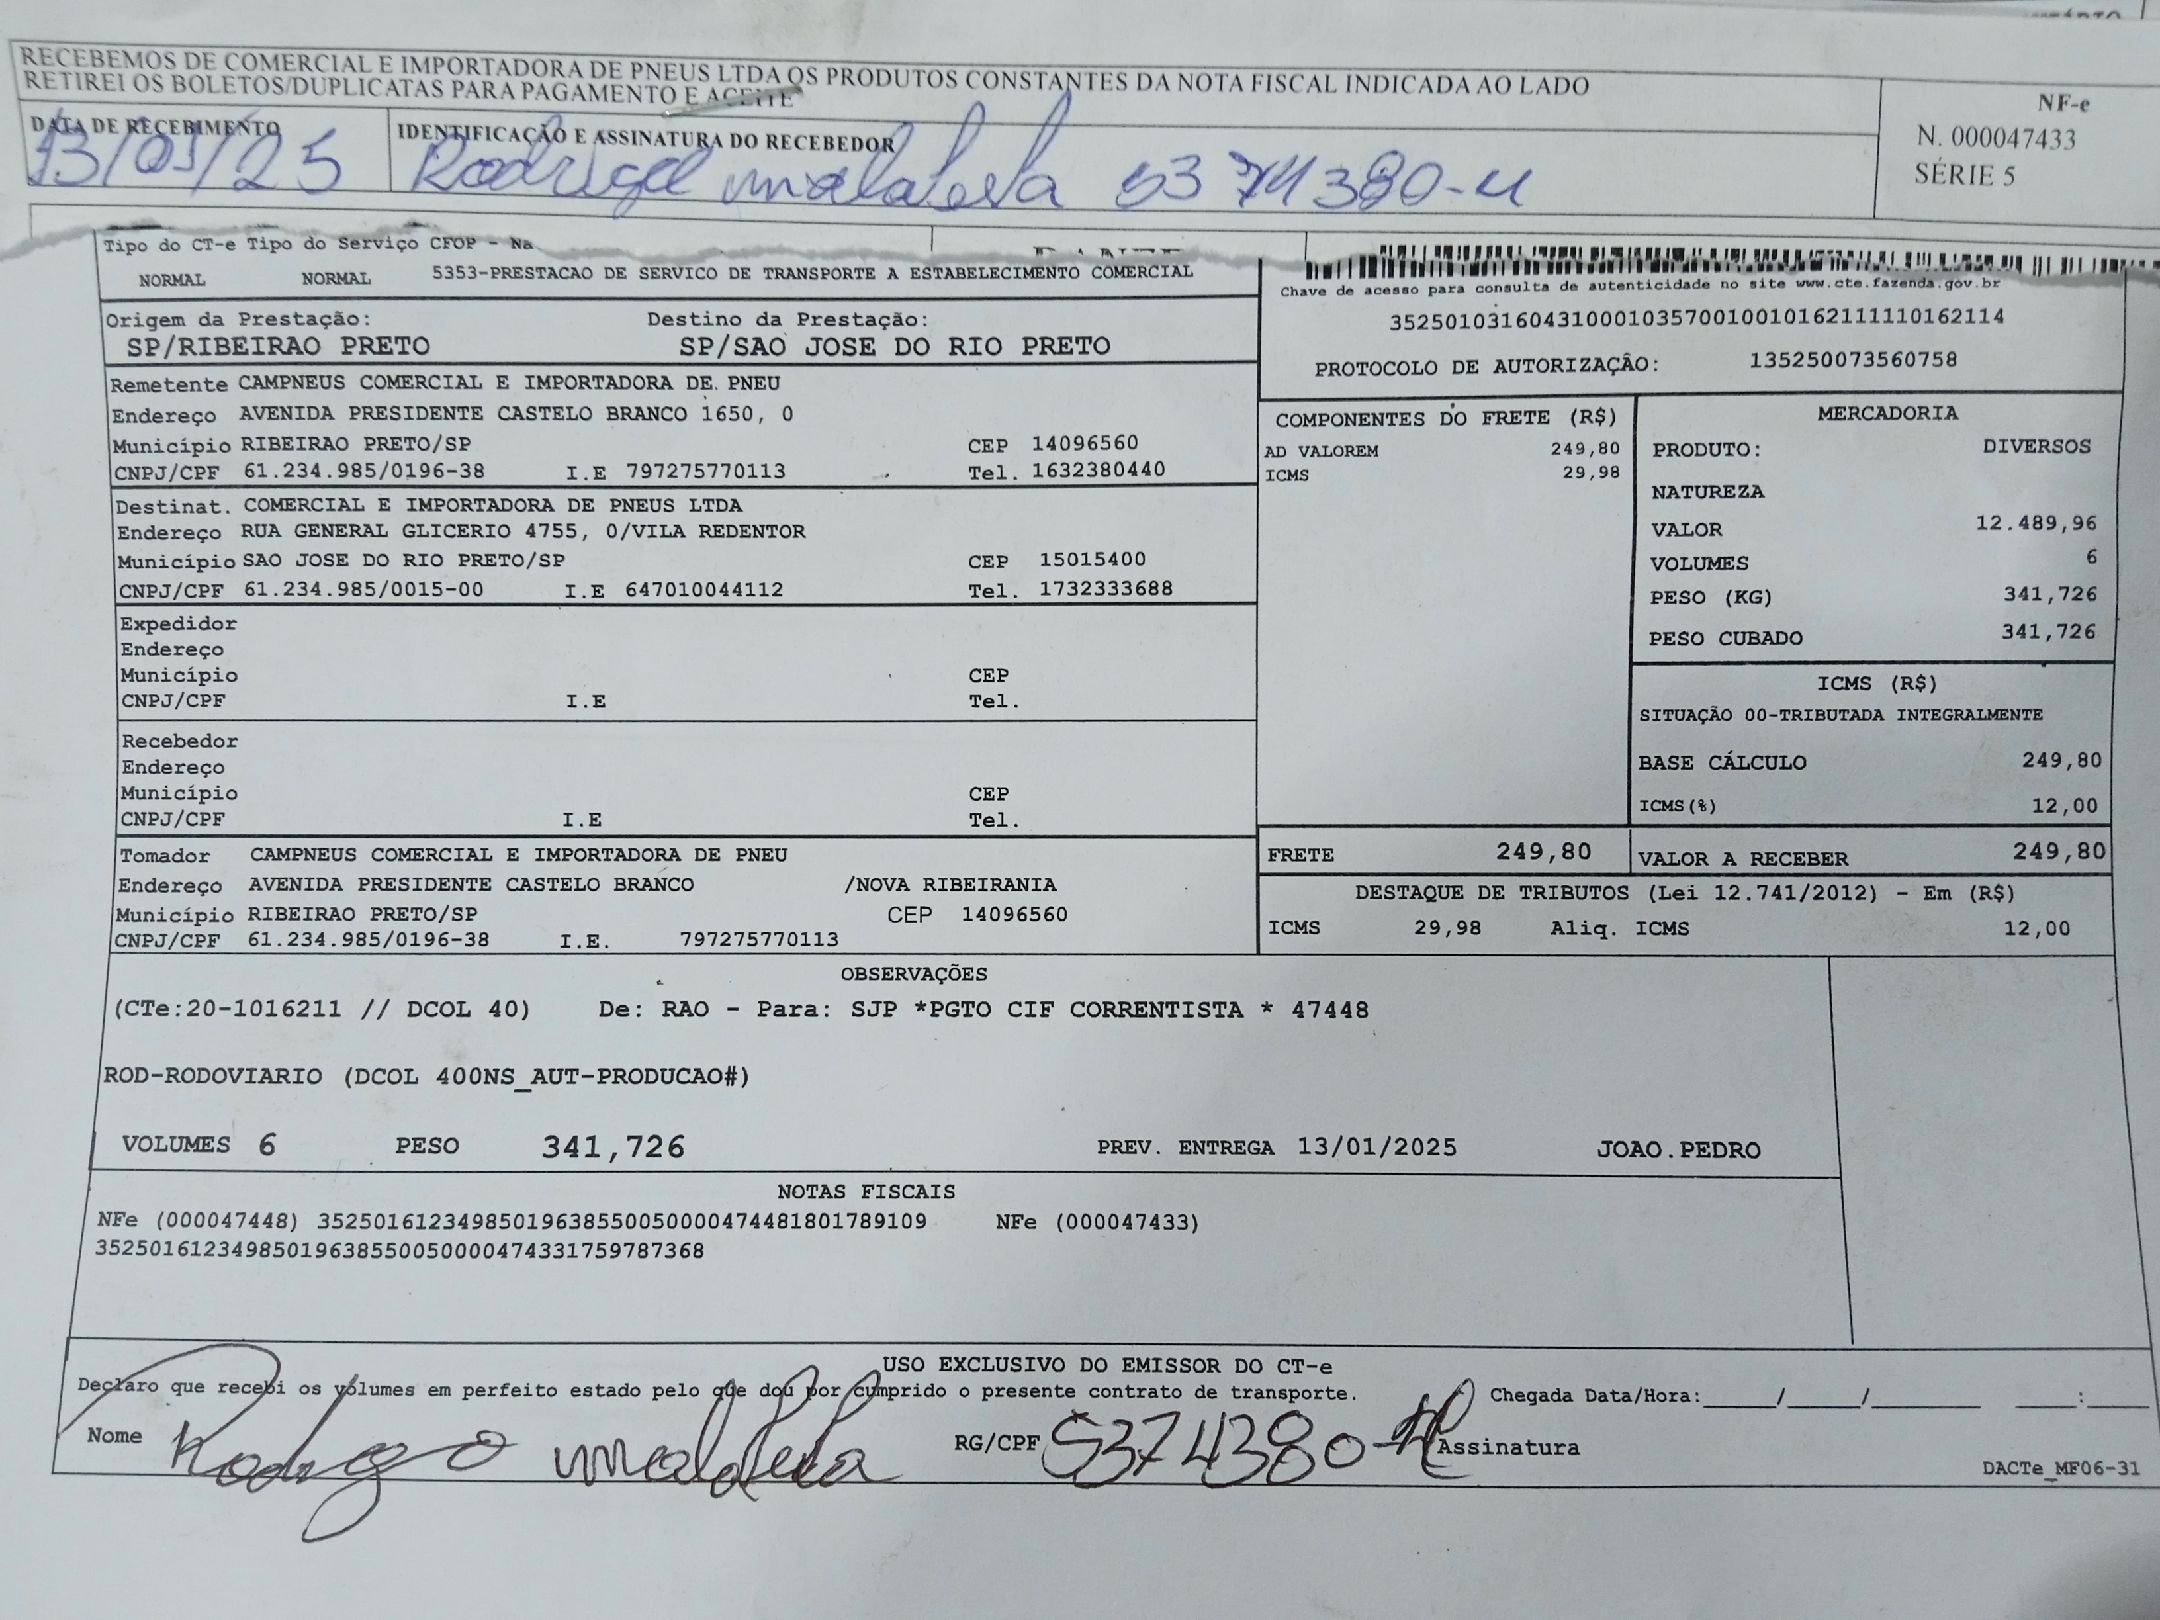 RECEBEMOS DE COMERCIAL E IMPORTADORA DE PNEUS LTDA OS PRODUTOS CONSTANTES DA NOTA FISCAL INDICADA AO LADO
RETIREI OS BOLETOS/DUPLICATAS PARA PAGAMENTO E ACEITE
DATA DE RECEBIMENTO
13/01/25
IDENTIFICAÇÃO E ASSINATURA DO RECEBEDOR
NF-e
N. 000047433
SÉRIE 5
Tipo do CT-e Tipo do Serviço CFOP - Na
NORMAL NORMAL 5353-PRESTACAO DE SERVICO DE TRANSPORTE A ESTABELECIMENTO COMERCIAL
Chave de acesso para consulta de autenticidade no site www.cte.fazenda.gov.br
35250103160431000103570010010162111110162114
PROTOCOLO DE AUTORIZAÇÃO: 135250073560758
Origem da Prestação: Destino da Prestação:
SP/RIBEIRAO PRETO SP/SAO JOSE DO RIO PRETO
Remetente CAMPNEUS COMERCIAL E IMPORTADORA DE PNEU
Endereço AVENIDA PRESIDENTE CASTELO BRANCO 1650, 0
Município RIBEIRAO PRETO/SP CEP 14096560
CNPJ/CPF 61.234.985/0196-38 I.E 797275770113 Tel. 1632380440
Destinat. COMERCIAL E IMPORTADORA DE PNEUS LTDA
Endereço RUA GENERAL GLICERIO 4755, 0/VILA REDENTOR
Município SAO JOSE DO RIO PRETO/SP CEP 15015400
CNPJ/CPF 61.234.985/0015-00 I.E 647010044112 Tel. 1732333688
Expedidor
Endereço
Município CEP
CNPJ/CPF I.E Tel.
Recebedor
Endereço
Município CEP
CNPJ/CPF I.E Tel.
Tomador CAMPNEUS COMERCIAL E IMPORTADORA DE PNEU
Endereço AVENIDA PRESIDENTE CASTELO BRANCO /NOVA RIBEIRANIA
Município RIBEIRAO PRETO/SP CEP 14096560
CNPJ/CPF 61.234.985/0196-38 I.E. 797275770113
COMPONENTES DO FRETE (R$)
AD VALOREM 249,80
ICMS 29,98
MERCADORIA
PRODUTO: DIVERSOS
NATUREZA
VALOR 12.489,96
VOLUMES 6
PESO (KG) 341,726
PESO CUBADO 341,726
ICMS (R$)
SITUAÇÃO 00-TRIBUTADA INTEGRALMENTE
BASE CÁLCULO 249,80
ICMS(%) 12,00
FRETE 249,80 VALOR A RECEBER 249,80
DESTAQUE DE TRIBUTOS (Lei 12.741/2012) - Em (R$)
ICMS 29,98 Aliq. ICMS 12,00
OBSERVAÇÕES
(CTe:20-1016211 // DCOL 40) De: RAO - Para: SJP *PGTO CIF CORRENTISTA * 47448
ROD-RODOVIARIO (DCOL 400NS_AUT-PRODUCAO#)
VOLUMES 6 PESO 341,726 PREV. ENTREGA 13/01/2025 JOAO.PEDRO
NOTAS FISCAIS
NFe (000047448) 35250161234985019638550050000474481801789109 NFe (000047433)
35250161234985019638550050000474331759787368
USO EXCLUSIVO DO EMISSOR DO CT-e
Declaro que recebi os volumes em perfeito estado pelo que dou por cumprido o presente contrato de transporte. Chegada Data/Hora:____/____/____ ____:____
Nome Rodrigo RG/CPF 5374380 Assinatura
DACTe_MF06-31